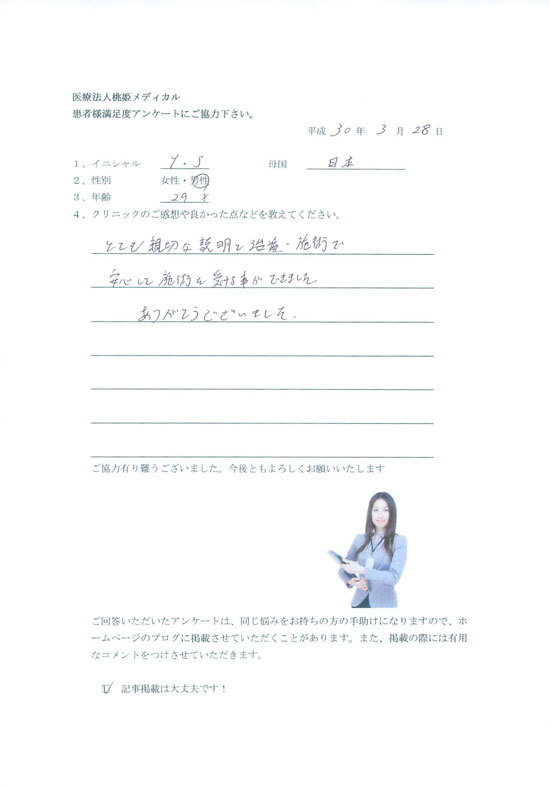 医療法人桃姫メディカル
患者様満足度アンケートにご協力下さい。
平成 30 年 3 月 28 日
1、イニシャル Y.S 母国 日本
2、性別 女性・男性
3、年齢 29才
4、クリニックのご感想や良かった点などを教えてください。
とても親切な説明と治療、施術で
安心して施術を受ける事ができました
ありがとうございました。
ご協力有り難うございました。今後ともよろしくお願いいたします
ご回答いただいたアンケートは、同じ悩みをお持ちの方の手助けになりますので、ホ
ームページのブログに掲載させていただくことがあります。また、掲載の際には有用
なコメントをつけさせていただきます。
☑ 記事掲載は大丈夫です！